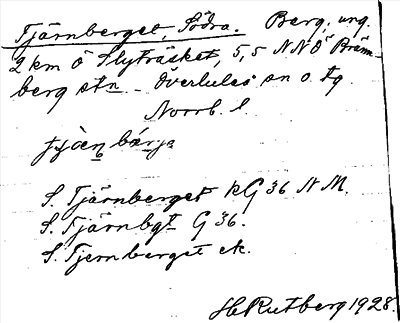 Tjärnberget, Södra. Berg, ung.
2 km Ö Slyträsket, 5,5 NNÖ Bräm-
berg stn. Överlules sn o. tg
Norrb. l.
S. Tjärnberget kG 36 N M.
S. Tjärnbgt G 36.
S. Tjernberget ek.
H Rutberg 1928.